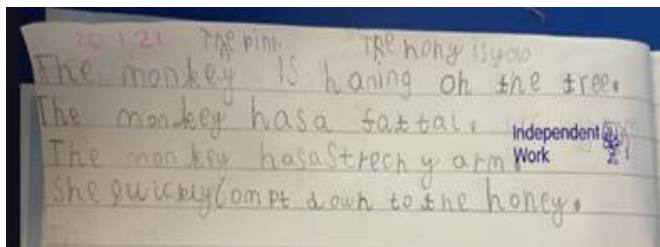 20.1.21 The pink The hony is you
The monkey is haning on the tree.
The monkey hasa fat tal.
The monkey hasa Strechy arm
She quickly Jompt down to the honey.
Independent
Work